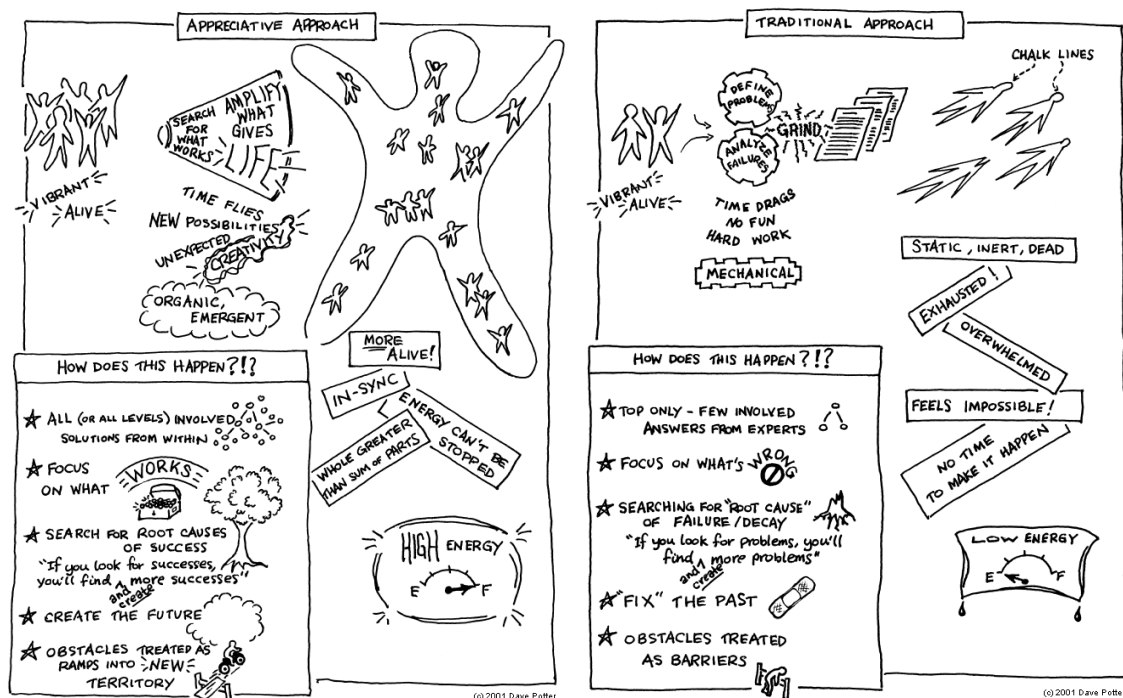 APPRECIATIVE APPROACH
SEARCH
FOR
WHAT
WORKS
AMPLIFY
WHAT
GIVES
LIFE
VIBRANT
ALIVE
TIME FLIES
NEW POSSIBILITIES
UNEXPECTED
CREATIVITY
ORGANIC,
EMERGENT
MORE
ALIVE!
IN-SYNC
ENERGY CAN'T BE
STOPPED
WHOLE GREATER
THAN SUM OF PARTS
HIGH ENERGY
E F
HOW DOES THIS HAPPEN?!?
ALL (OR ALL LEVELS) INVOLVED
SOLUTIONS FROM WITHIN
FOCUS
ON WHAT
WORKS
SEARCH FOR ROOT CAUSES
OF SUCCESS
"If you look for successes,
you'll find ^ more successes"
and
create
CREATE THE FUTURE
OBSTACLES TREATED AS
RAMPS INTO NEW
TERRITORY
(c) 2001 Dave Potter
TRADITIONAL APPROACH
CHALK LINES
DEFINE
PROBLEMS
ANALYZE
FAILURES
GRIND
VIBRANT
ALIVE
TIME DRAGS
NO FUN
HARD WORK
MECHANICAL
STATIC, INERT, DEAD
EXHAUSTED!
OVERWHELMED
FEELS IMPOSSIBLE!
NO TIME
TO MAKE IT HAPPEN
LOW ENERGY
E F
HOW DOES THIS HAPPEN?!?
TOP ONLY - FEW INVOLVED
ANSWERS FROM EXPERTS
FOCUS ON WHAT'S WRONG
SEARCHING FOR "ROOT CAUSE"
OF FAILURE/DECAY
"If you look for problems, you'll
find ^ more problems"
and
create
"FIX" THE PAST
OBSTACLES TREATED
AS BARRIERS
(c) 2001 Dave Potte